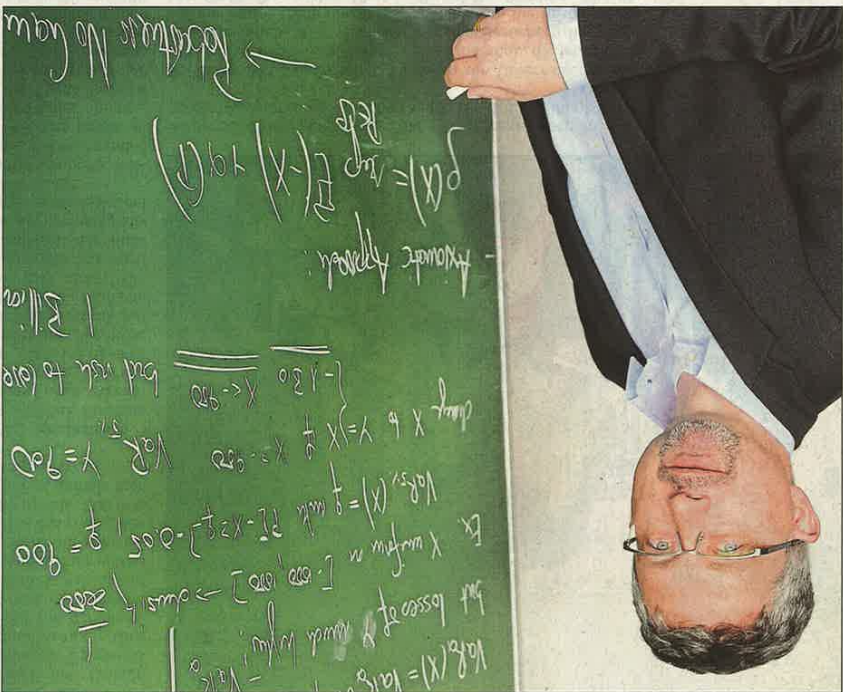 VaR_α(X) = VaR_α
but losses of Y much higher! - VaR_α
Ex. X uniform on [-1000, 1000] → density 1/2000
VaR_5%(X) = q with P[-X ≥ q] = 0.05, q = 900
change X to Y = { X if X ≥ -950 VaR_5% Y = 900
{ -1 Bio X < -950 but risk to lose
1 Billion
- Axiomatic Approach:
ρ(X) = sup_{P∈𝒫} E_P(-X) + α(P)
← Robustness No Gain